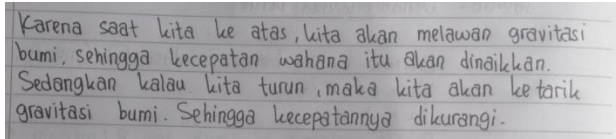 Karena saat kita ke atas, kita akan melawan gravitasi
bumi, sehingga kecepatan wahana itu akan dinaikkan.
Sedangkan kalau kita turun, maka kita akan ke tarik
gravitasi bumi. Sehingga kecepatannya dikurangi.